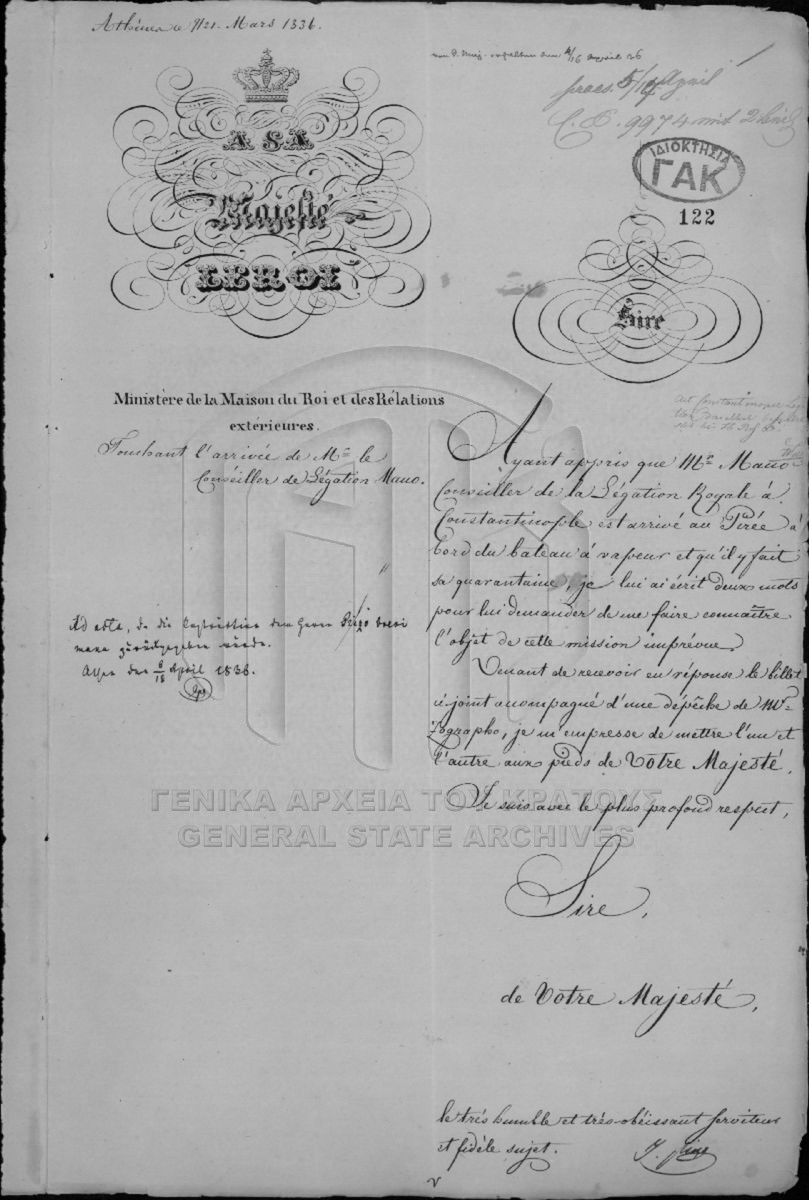 Athènes le 9/21 Mars 1836.
A SA
Majesté
LE ROI
5/17 April
9974 mit 2
ΙΔΙΟΚΤΗΣΙΑ
ΓΑΚ
122
Sire
Ministère de la Maison du Roi et des Rélations
extérieures.
Touchant l'arrivée de Mr. le
Conseiller de Légation Mano.
Ad acta, da die dem Herrn
zurückgegeben wurde.
Athen den 6/18 April 1836.
Ayant appris que Mr. Mano
Conseiller de la Légation Royale à
Constantinople est arrivé au Pirée à
bord du bateau à vapeur et qu'il y fait
sa quarantaine, je lui ai écrit deux mots
pour lui demander de me faire connaître
l'objet de cette mission imprévue.
Venant de recevoir en réponse le billet
ci-joint accompagné d'une dépêche de Mr.
Zographo, je m'empresse de mettre l'un et
l'autre aux pieds de Votre Majesté.
Je suis avec le plus profond respect,
ΓΕΝΙΚΑ ΑΡΧΕΙΑ ΤΟΥ ΚΡΑΤΟΥΣ
GENERAL STATE ARCHIVES
Sire,
de Votre Majesté,
le très humble et très-obéissant serviteur
et fidèle sujet.